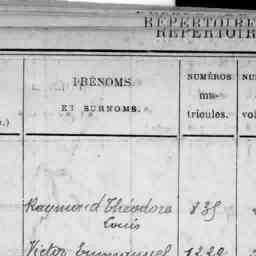 RÉPERTOIRE
RÉPERTOIR
PRÉNOMS
ET SURNOMS.
NUMÉROS
ma-
tricules.
NU
vo
.)
Raymond Théodore 835
Louis
Victor Emmanuel 1220